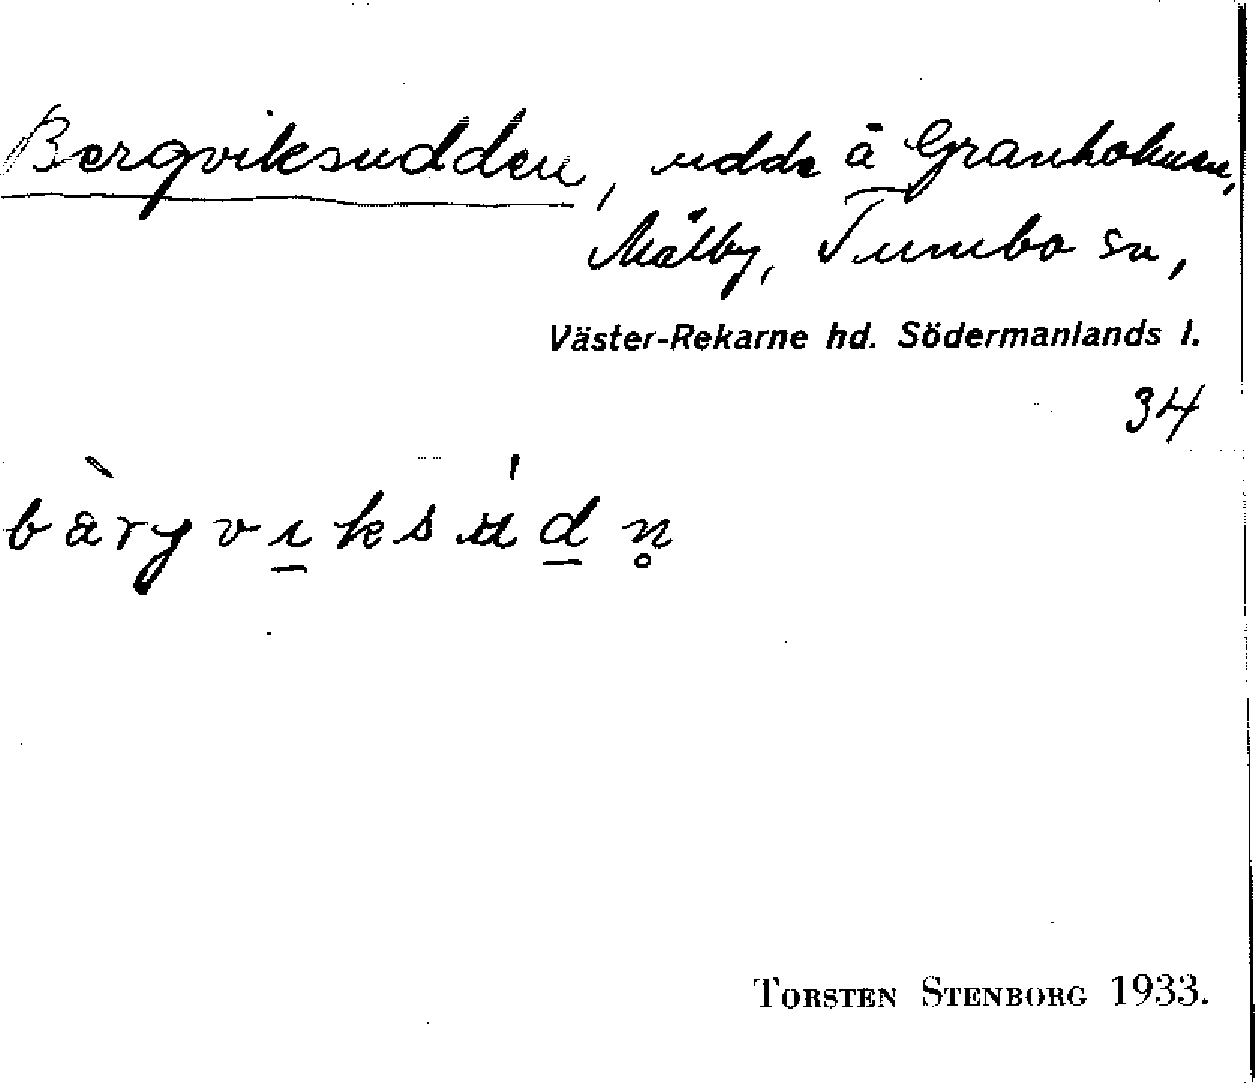 Bergviksudden, udde å Granholmen,
Mälby, Tumbo sn,
Väster-Rekarne hd. Södermanlands l.
34
bàrgvıksúdn̥
TORSTEN STENBORG 1933.